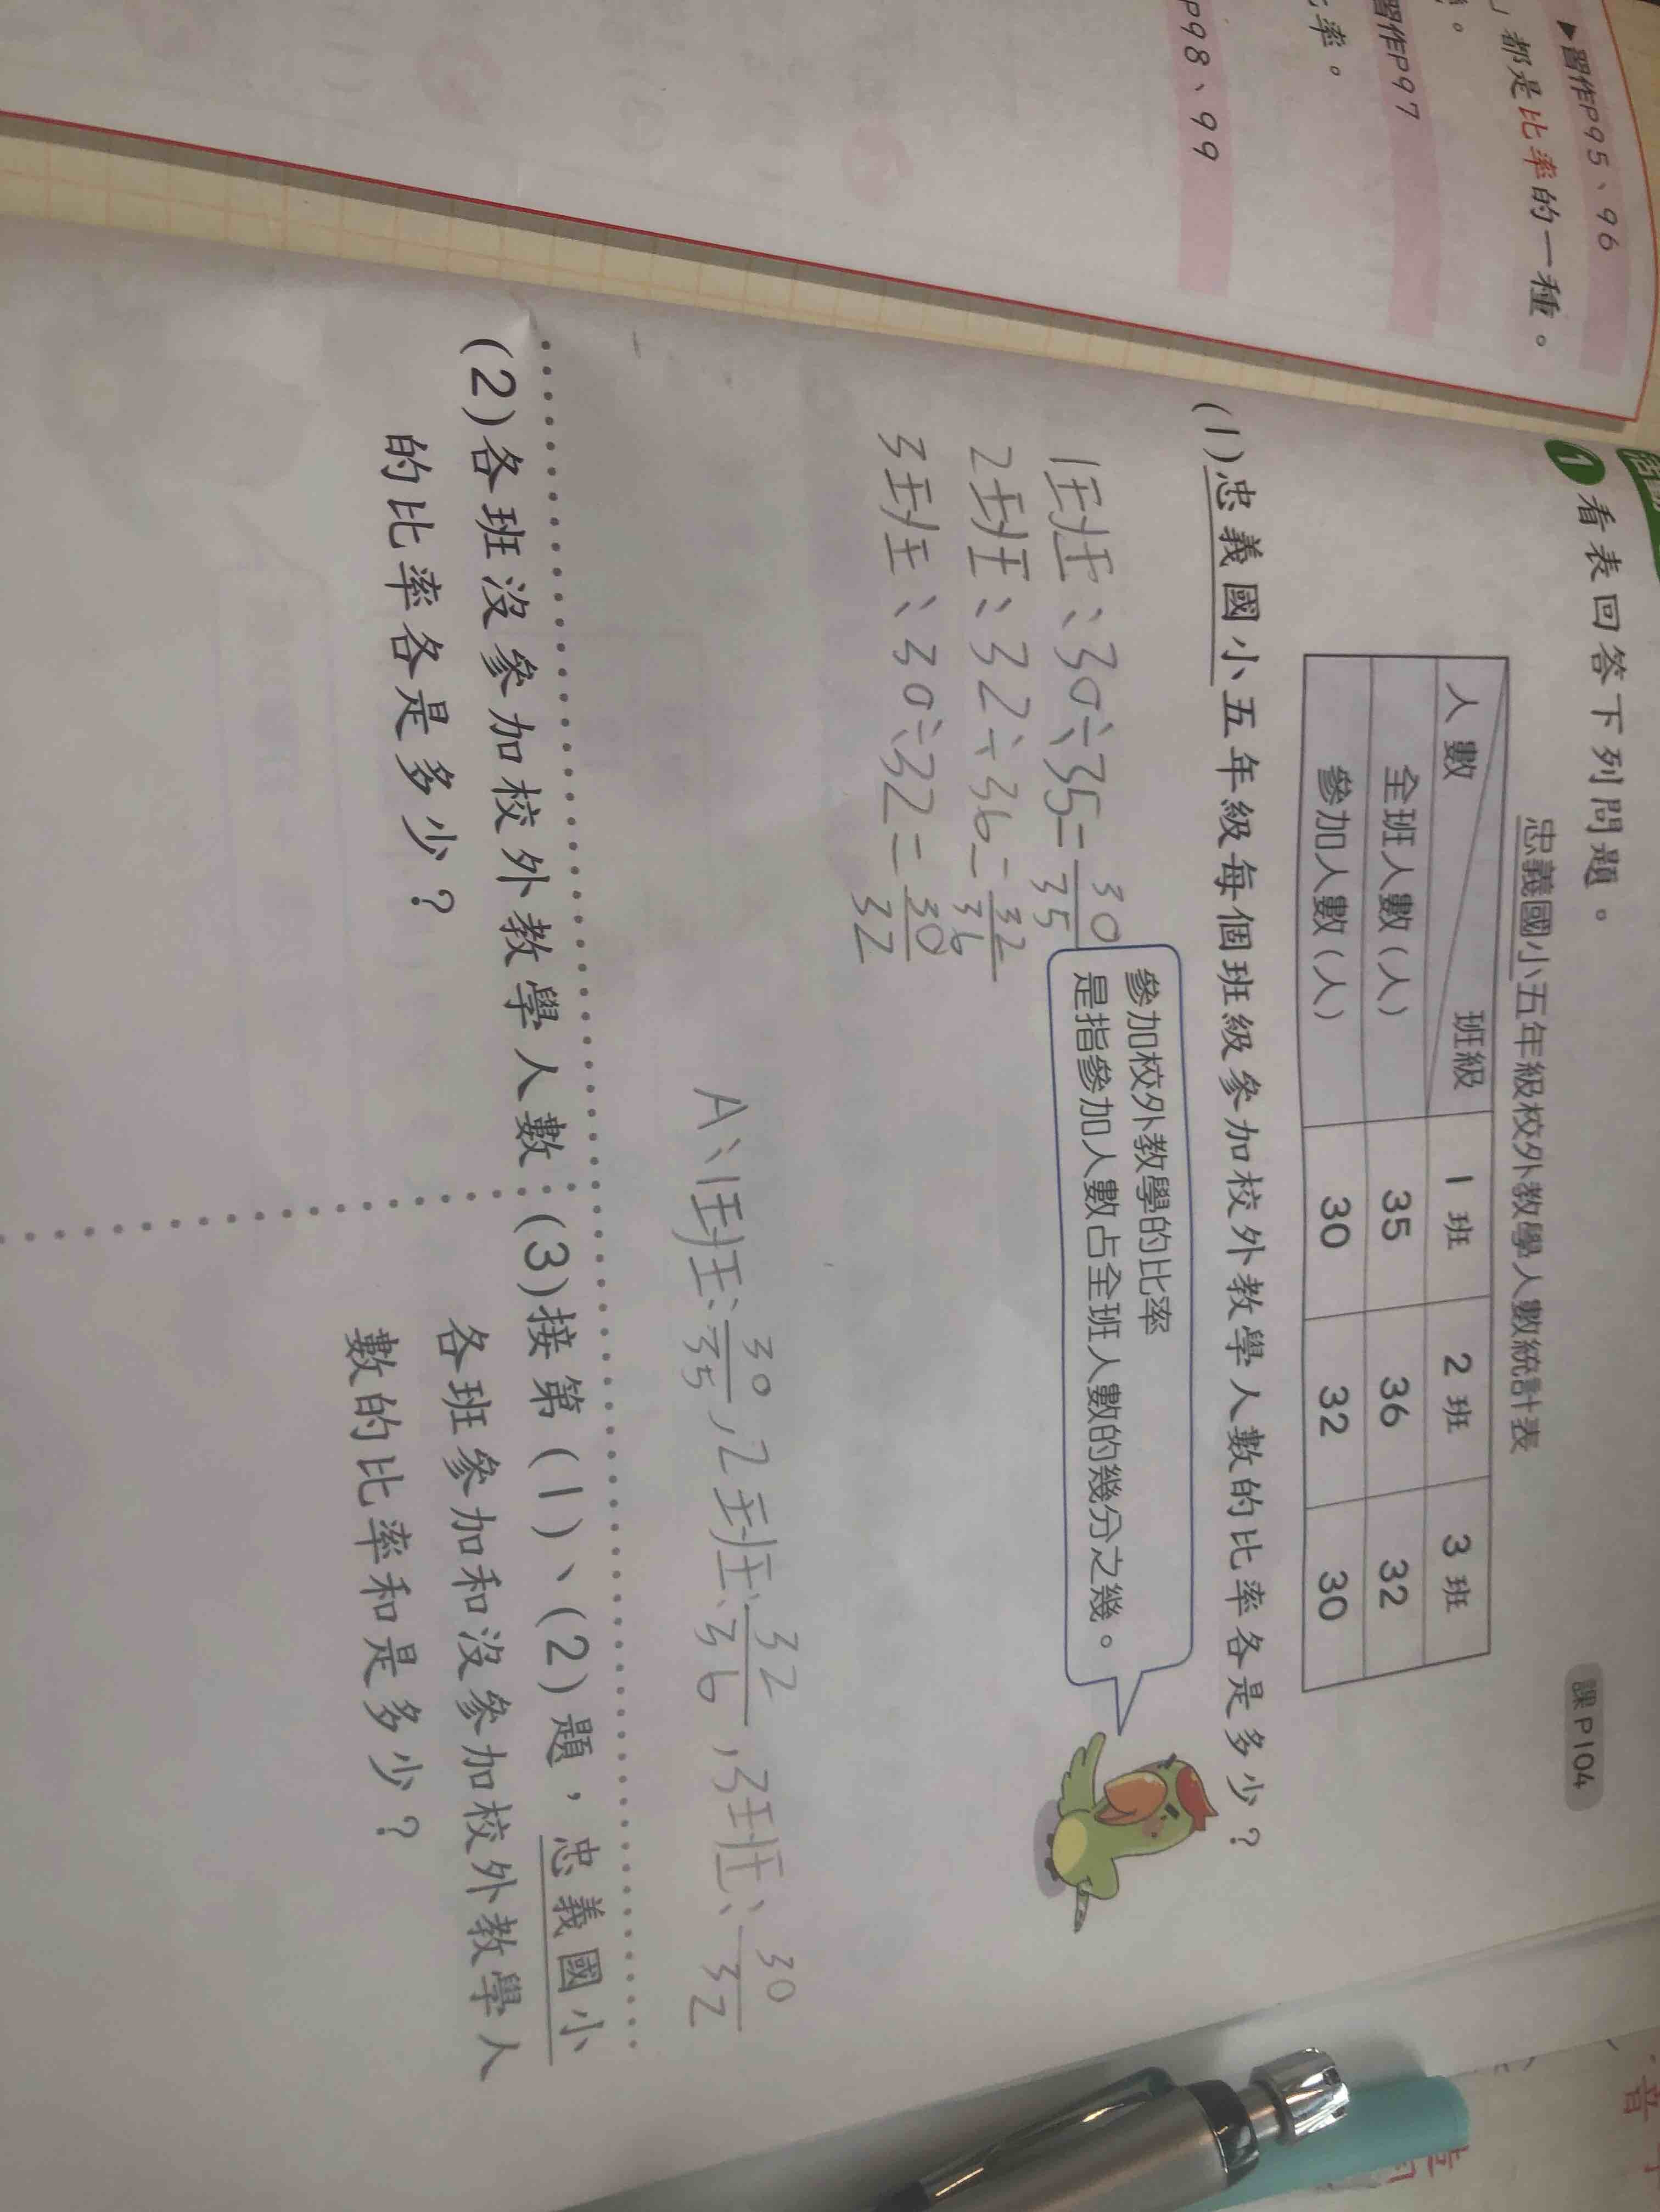 ▶習作P95、96
」都是比率的一種。
習作P97
比率。
P98、99
1 看表回答下列問題。
課P104
忠義國小五年級校外教學人數統計表
人數 班級 1班 2班 3班
全班人數(人) 35 36 32
參加人數(人) 30 32 30
(1)忠義國小五年級每個班級參加校外教學人數的比率各是多少?
參加校外教學的比率
是指參加人數占全班人數的幾分之幾。
1班:30÷35=30/35
2班:32÷36=32/36
3班:30÷32=30/32
A:1班:30/35,2班:32/36,3班:30/32
(2)各班沒參加校外教學人數
的比率各是多少?
(3)接第(1)、(2)題,忠義國小
各班參加和沒參加校外教學人
數的比率和是多少?